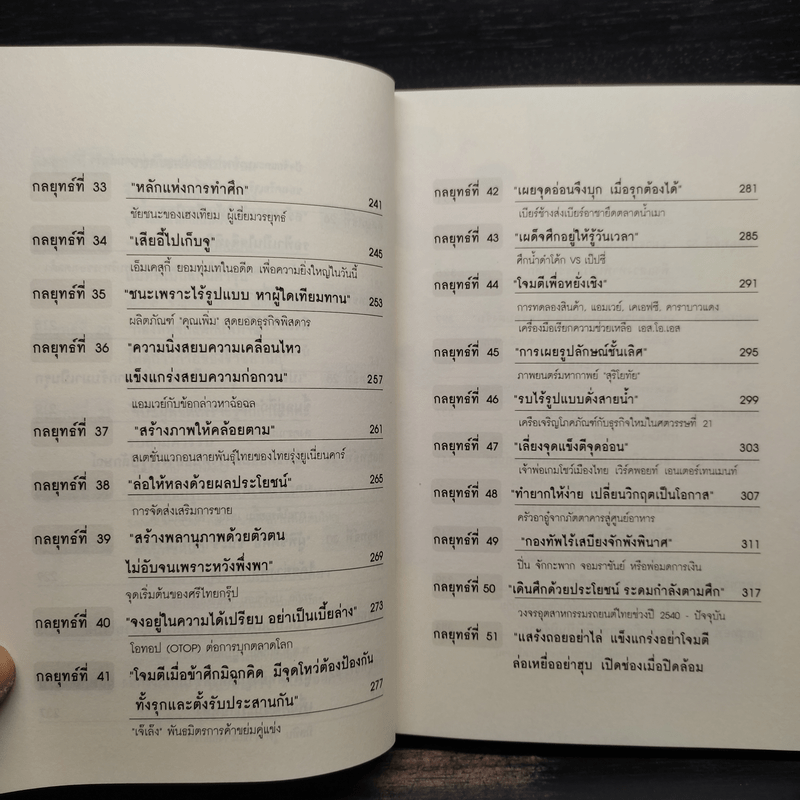 กลยุทธ์ที่ 33 "หลักแห่งการทำศึก" 241
ชัยชนะของเฮงเทียม ผู้เยี่ยมวรยุทธ์
กลยุทธ์ที่ 34 "เสียอี้ไปเก็บจู" 245
เอ็มเคสุกี้ ยอมทุ่มเทในอดีต เพื่อความยิ่งใหญ่ในวันนี้
กลยุทธ์ที่ 35 "ชนะเพราะไร้รูปแบบ หาผู้ใดเทียมทาน" 253
ผลิตภัณฑ์ "คุณเพิ่ม" สุดยอดธุรกิจพิสดาร
กลยุทธ์ที่ 36 "ความนิ่งสยบความเคลื่อนไหว
แข็งแกร่งสยบความก่อกวน" 257
แอมเวย์กับข้อกล่าวหาฉ้อฉล
กลยุทธ์ที่ 37 "สร้างภาพให้คล้อยตาม" 261
สเตชั่นแวกอนสายพันธุ์ไทยของไทยรุ่งยูเนี่ยนคาร์
กลยุทธ์ที่ 38 "ล่อให้หลงด้วยผลประโยชน์" 265
การจัดส่งเสริมการขาย
กลยุทธ์ที่ 39 "สร้างพลานุภาพด้วยตัวตน
ไม่อับจนเพราะหวังพึ่งพา" 269
จุดเริ่มต้นของศรีไทยกรุ๊ป
กลยุทธ์ที่ 40 "จงอยู่ในความได้เปรียบ อย่าเป็นเบี้ยล่าง" 273
โอทอป (OTOP) ต่อการบุกตลาดโลก
กลยุทธ์ที่ 41 "โจมตีเมื่อข้าศึกมิฉุกคิด มีจุดโหว่ต้องป้องกัน
ทั้งรุกและตั้งรับประสานกัน" 277
"เจ๊เล้ง" พันธมิตรการค้าข่มคู่แข่ง
กลยุทธ์ที่ 42 "เผยจุดอ่อนจึงบุก เมื่อรุกต้องได้" 281
เบียร์ช้างส่งเบียร์อาชายึดตลาดน้ำเมา
กลยุทธ์ที่ 43 "เผด็จศึกอยู่ให้รู้วันเวลา" 285
ศึกน้ำดำโค้ก VS เป๊ปซี่
กลยุทธ์ที่ 44 "โจมตีเพื่อหยั่งเชิง" 291
การทดลองสินค้า, แอมเวย์, เคเอฟซี, คาราบาวแดง
เครื่องมือเรียกความช่วยเหลือ เอส.โอ.เอส
กลยุทธ์ที่ 45 "การเผยรูปลักษณ์ชั้นเลิศ" 295
ภาพยนตร์มหากาพย์ "สุริโยทัย"
กลยุทธ์ที่ 46 "รบไร้รูปแบบดั่งสายน้ำ" 299
เครือเจริญโภคภัณฑ์กับธุรกิจใหม่ในศตวรรษที่ 21
กลยุทธ์ที่ 47 "เลี่ยงจุดแข็งตีจุดอ่อน" 303
เจ้าพ่อเกมโชว์เมืองไทย เวิร์คพอยท์ เอนเตอร์เทนเมนท์
กลยุทธ์ที่ 48 "ทำยากให้ง่าย เปลี่ยนวิกฤตเป็นโอกาส" 307
ครัวอาอู๋จากภัตตาคารสู่ศูนย์อาหาร
กลยุทธ์ที่ 49 "กองทัพไร้เสบียงจักพังพินาศ" 311
ปิ่น จักกะพาก จอมราชันย์ หรือพ่อมดการเงิน
กลยุทธ์ที่ 50 "เดินศึกด้วยประโยชน์ ระดมกำลังตามศึก" 317
วงจรอุตสาหกรรมรถยนต์ไทยช่วงปี 2540 - ปัจจุบัน
กลยุทธ์ที่ 51 "แสร้งถอยอย่าไล่ แข็งแกร่งอย่าโจมตี
ล่อเหยื่ออย่าฮุบ เปิดช่องเมื่อปิดล้อม